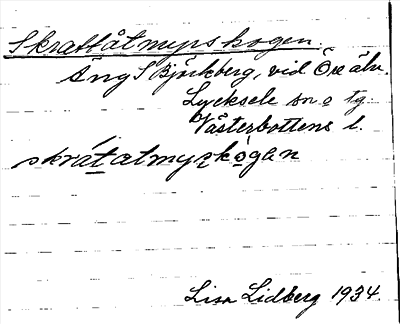 Skrattåtmyrskogen.
Äng S Björkberg, vid Öre älv.
Lycksele sn o tg.
Västerbottens l.
skrátatmyṛskògen
Lisa Lidberg 1934.